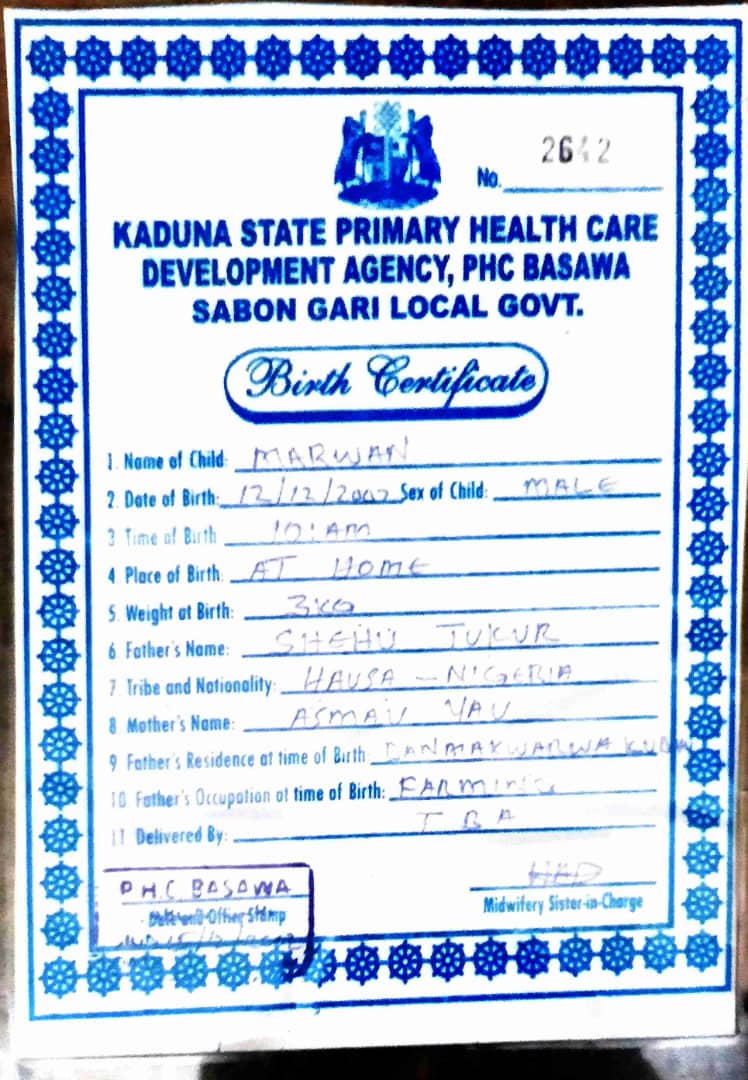 No. 2642
KADUNA STATE PRIMARY HEALTH CARE
DEVELOPMENT AGENCY, PHC BASAWA
SABON GARI LOCAL GOVT.
Birth Certificate
1. Name of Child: MARWAN
2. Date of Birth: 12/12/2002 Sex of Child: MALE
3 Time of Birth 10:AM
4. Place of Birth: AT HOME
5. Weight at Birth: 3KG
6. Father's Name: SHEHU TUKUR
7. Tribe and Nationality: HAUSA - NIGERIA
8. Mother's Name: ASMAU YAU
9 Father's Residence at time of Birth:
10 Father's Occupation at time of Birth: FARMING
11 Delivered By: T B A
P.H.C BASAWA
Date and Office Stamp
Midwifery Sister-in-Charge